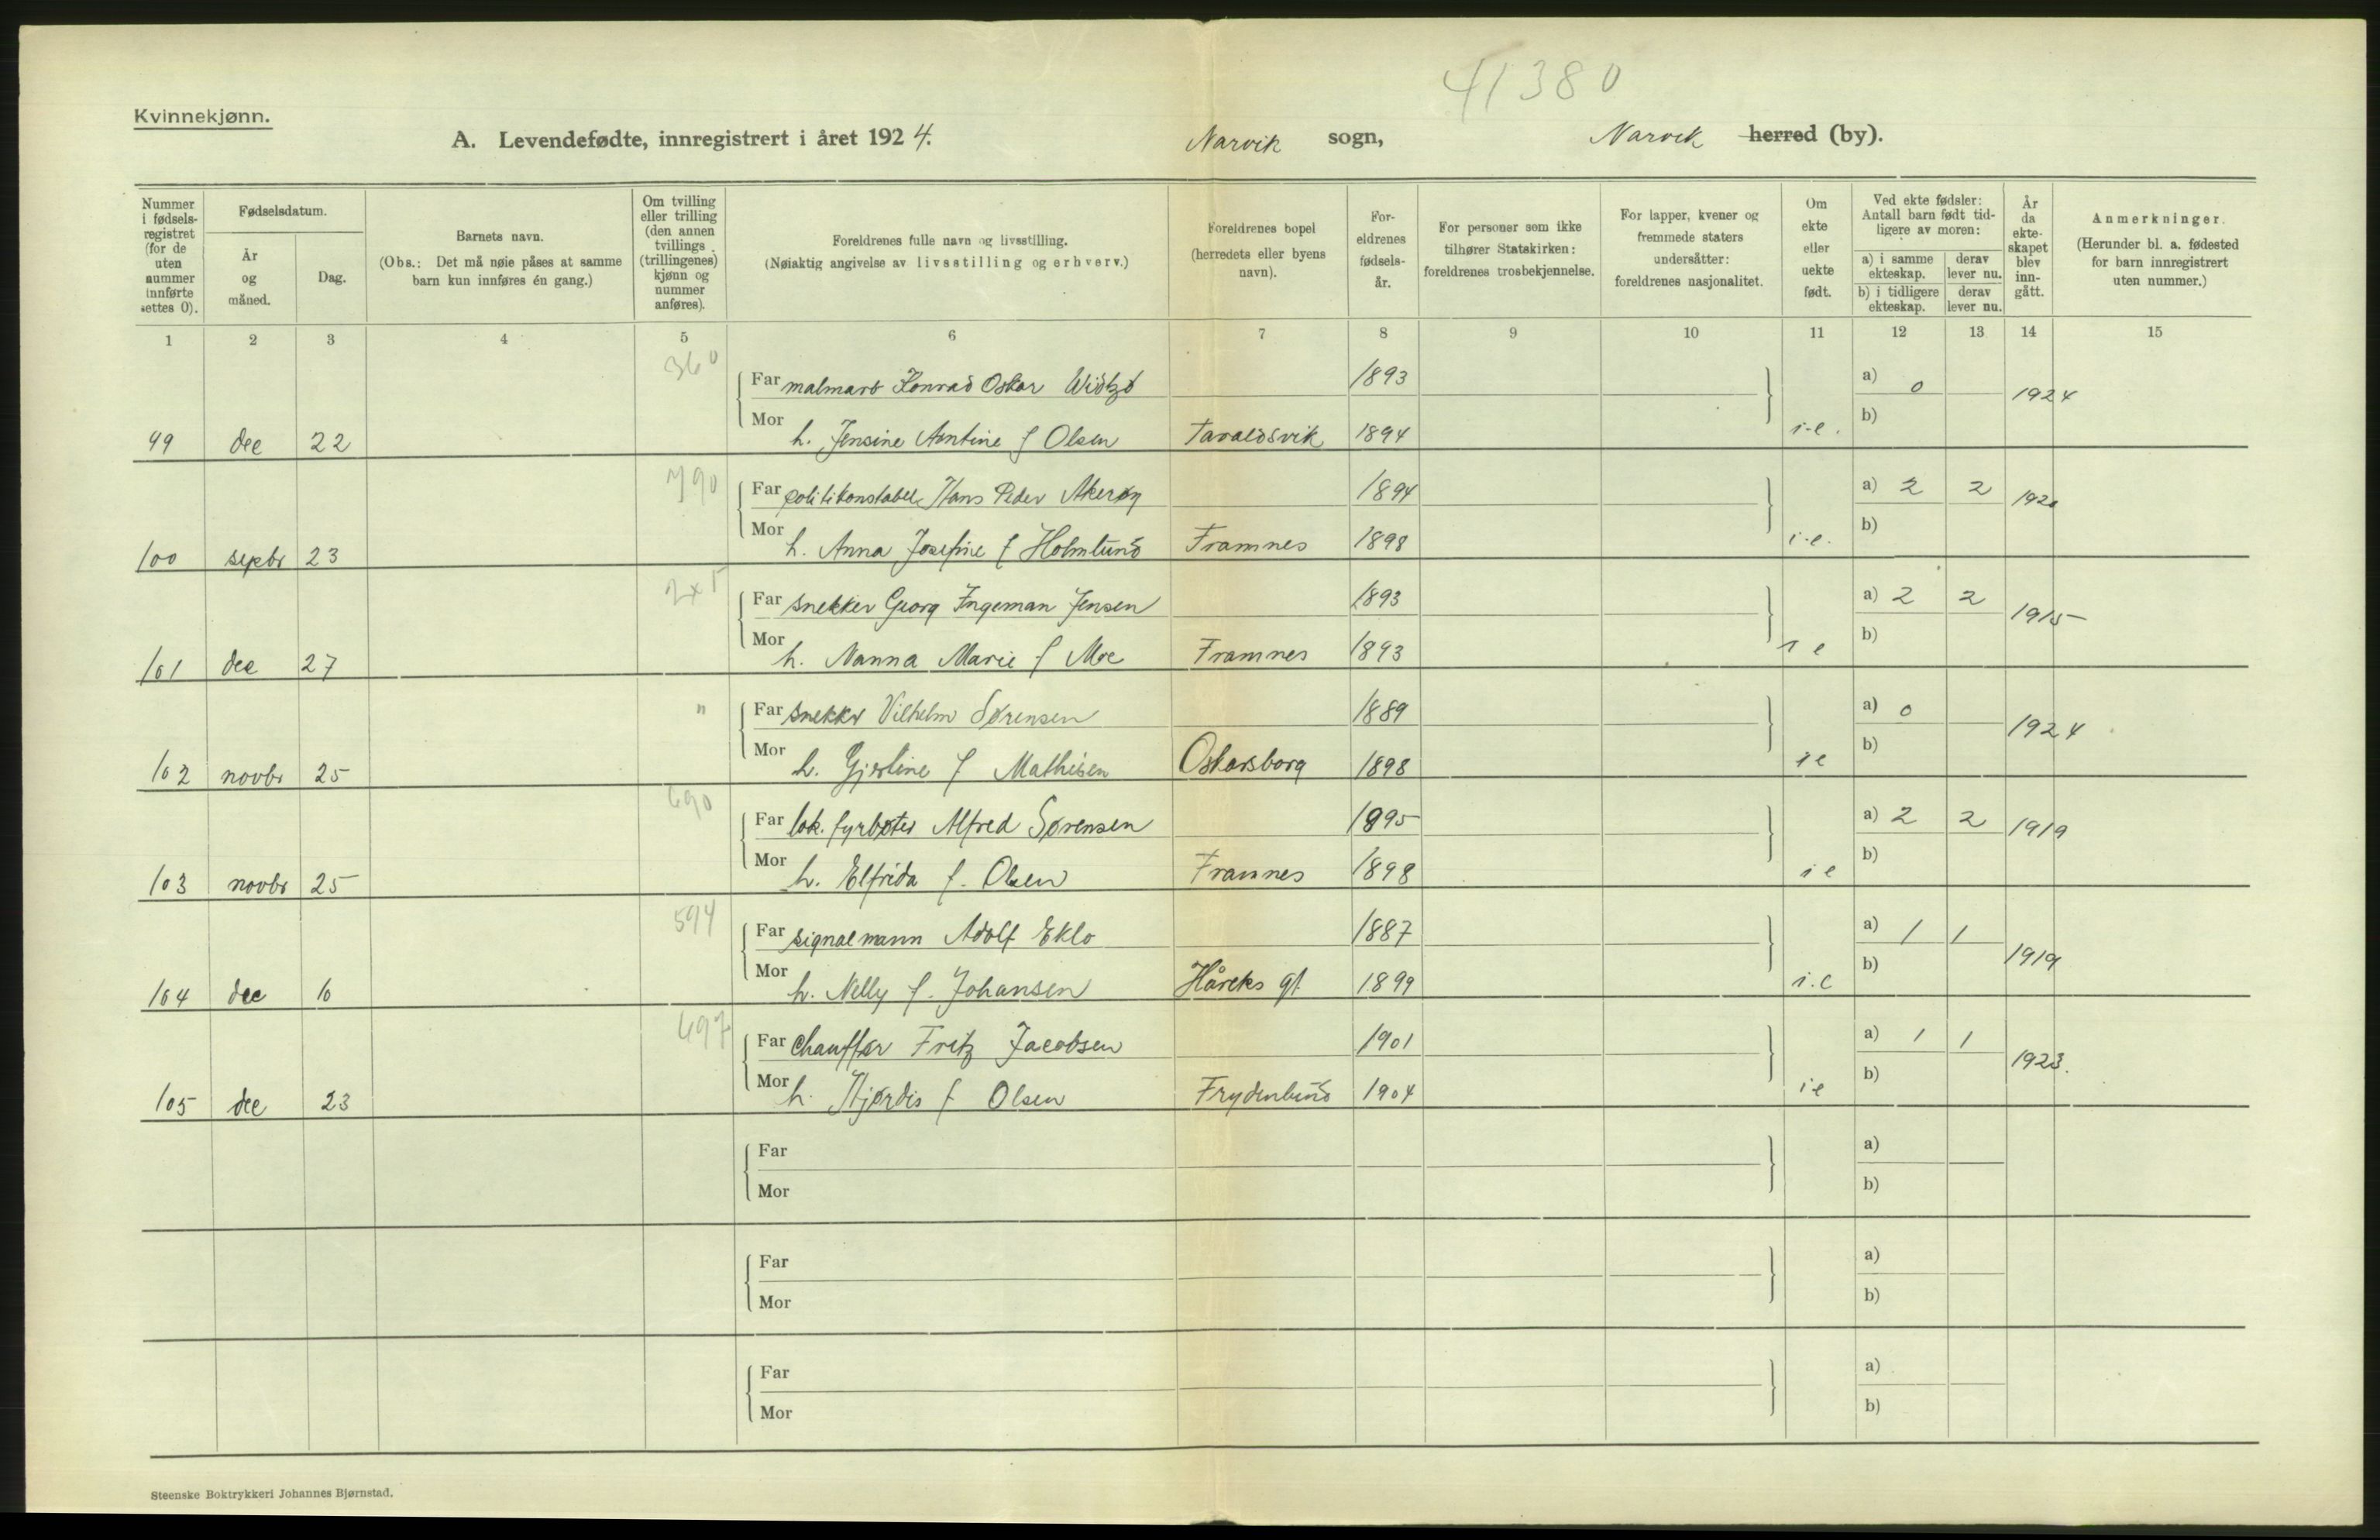 41380
Kvinnekjønn.
A. Levendefødte, innregistrert i året 1924. Narvik sogn, Narvik herred (by).
Nummer i fødsels-registret (for de uten nummer innførte settes 0).
Fødselsdatum.
År og måned.
Dag.
Barnets navn.
(Obs.: Det må nøie påses at samme barn kun innføres én gang.)
Om tvilling eller trilling (den annen tvillings (trillingenes) kjønn og nummer anføres).
Foreldrenes fulle navn og livsstilling.
(Nøiaktig angivelse av livsstilling og erhverv.)
Foreldrenes bopel (herredets eller byens navn).
For-eldrenes fødsels-år.
For personer som ikke tilhører Statskirken: foreldrenes trosbekjennelse.
For lapper, kvener og fremmede staters undersåtter: foreldrenes nasjonalitet.
Om ekte eller uekte født.
Ved ekte fødsler: Antall barn født tid-ligere av moren:
a) i samme ekteskap. derav lever nu.
b) i tidligere ekteskap. derav lever nu.
År da ekte-skapet blev inn-gått.
Anmerkninger.
(Herunder bl. a. fødested for barn innregistrert uten nummer.)
1 2 3 4 5 6 7 8 9 10 11 12 13 14 15
360
Far malmarb Konrad Oskar 1893 a) 0 1924
Mor h. Jensine Antine f Olsen Taraldsvik 1894 i-e. b)
99 dec 22
790
Far politikonstabel Hans Peder Akerøy 1894 a) 2 2 1920
Mor h. Anna Josefine f Holmlund Framnes 1898 i-e. b)
100 sepbr 23
Far snekker Georg Ingeman Jensen 1893 a) 2 2 1915
Mor h. Nanna Marie f Moe Framnes 1893 i e b)
101 dec 27
"
Far snekkr Vilhelm Sørensen 1889 a) 0 1924
Mor h. Gjertine f Mathisen Oskarsborg 1898 i e b)
102 novbr 25
690
Far lok. fyrbøter Alfred Sørensen 1895 a) 2 2 1919
Mor h. Elfrida f. Olsen Framnes 1898 i e b)
103 novbr 25
594
Far signalmann Adolf Eklo 1887 a) 1 1 1919
Mor h. Nelly f. Johansen Håreks gt 1899 i.e b)
104 dec 10
697
Far Chauffør Fritz Jacobsen 1901 a) 1 1 1923.
Mor h. Hjørdis f Olsen Frydenlund 1904 i e b)
105 dec 23
Far a)
Mor b)
Far a)
Mor b)
Far a)
Mor b)
Steenske Boktrykkeri Johannes Bjørnstad.